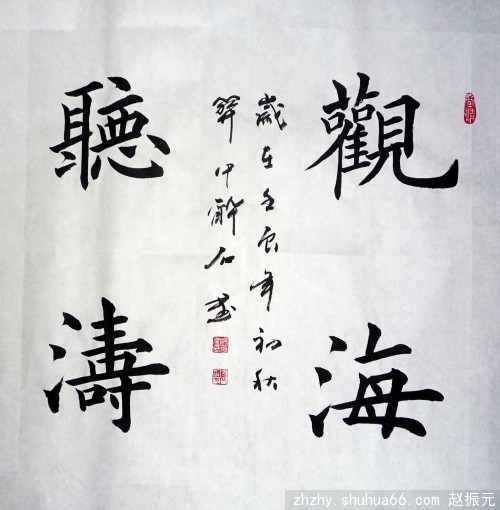 觀海
歲在壬辰年初秋
甲醉石書
聽濤
zhzhy.shuhua66.com 赵振元